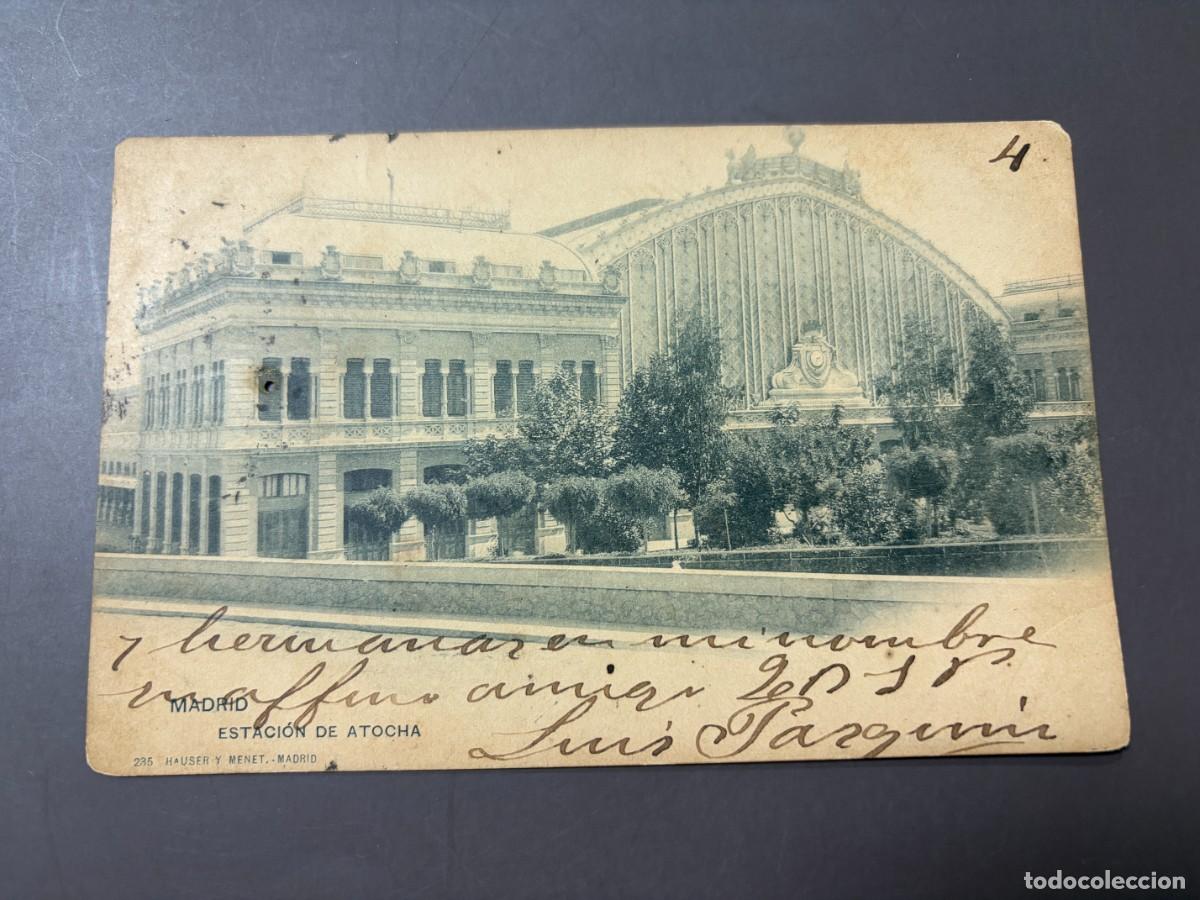 4
y hermanas en mi nombre
y affmo amigo
Luis Pasquin
MADRID
ESTACIÓN DE ATOCHA
235 HAUSER Y MENET.-MADRID
todocoleccion